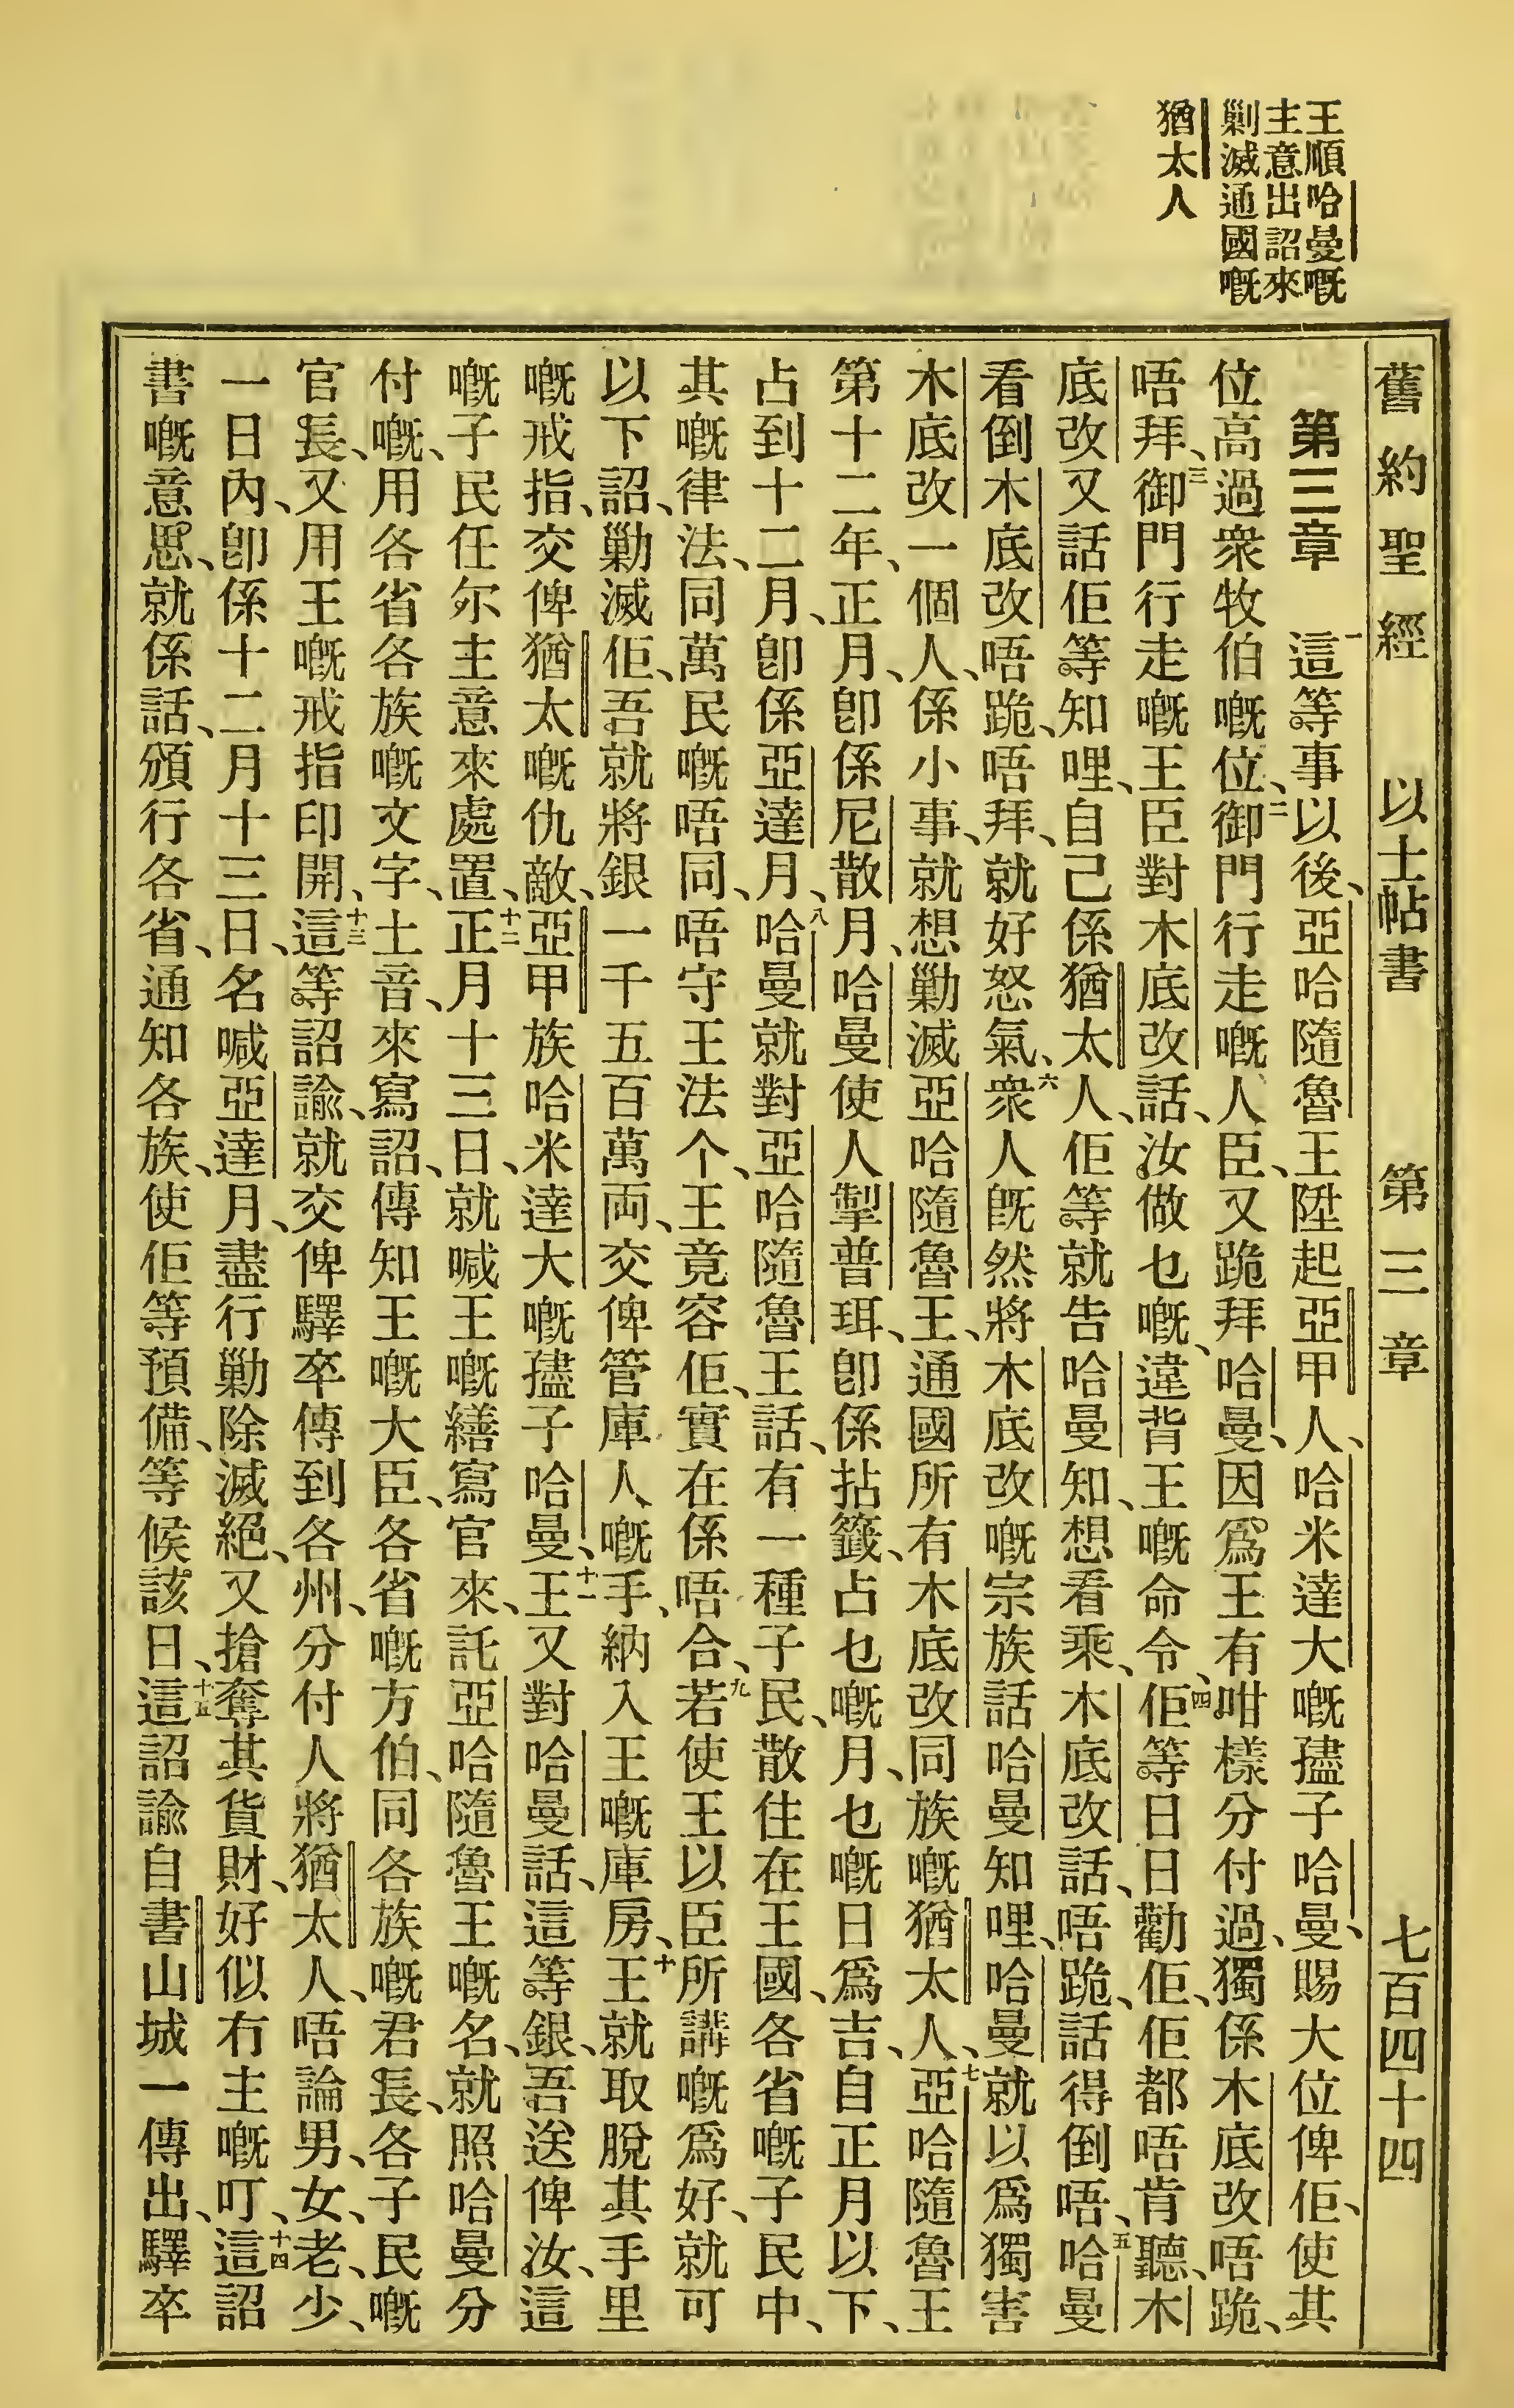 王順哈曼嘅
主意出詔來
剿滅通國嘅
猶太人
舊約聖經　以士帖書　第三章　七百四十四
第三章　一這等事以後、亞哈隨魯王陞起亞甲人、哈米達大嘅孻子哈曼、賜大位俾佢、使其
位高過衆牧伯嘅位、二御門行走嘅人臣、又跪拜哈曼、因爲王有咁樣分付過、獨係木底改唔跪、
唔拜、三御門行走嘅王臣對木底改話、汝做乜嘅、違背王嘅命令、四佢等日日勸佢、佢都唔肯聽、木
底改又話佢等知哩、自己係猶太人、佢等就告哈曼知、想看乘木底改話、唔跪、話得倒唔、五哈曼
看倒木底改唔跪、唔拜、就好怒氣、六衆人既然將木底改嘅宗族話哈曼知哩、哈曼就以爲獨害
木底改一個人、係小事、就想勦滅亞哈隨魯王、通國所有木底改同族嘅猶太人、七亞哈隨魯王
第十二年、正月、卽係尼散月、哈曼使人掣普珥、卽係拈籤、占乜嘅月、乜嘅日爲吉、自正月以下、
占到十二月、卽係亞達月、八哈曼就對亞哈隨魯王話、有一種子民、散住在王國、各省嘅子民中、
其嘅律法、同萬民嘅唔同、唔守王法个、王竟容佢、實在係唔合、九若使王以臣所講嘅爲好、就可
以下詔、勦滅佢、吾就將銀一千五百萬両、交俾管庫人嘅手、納入王嘅庫房、十王就取脫其手里
嘅戒指、交俾猶太嘅仇敵、亞甲族哈米達大嘅孻子哈曼、十一王又對哈曼話、這等銀、吾送俾汝、這
嘅子民任尔主意來處置、十二正月十三日、就喊王嘅繕寫官來、託亞哈隨魯王嘅名、就照哈曼分
付嘅、用各省各族嘅文字、土音、來寫詔、傳知王嘅大臣、各省嘅方伯、同各族嘅君長、各子民嘅
官長、又用王嘅戒指印開、十三這等詔諭、就交俾驛卒傳到各州、分付人將猶太人、唔論男、女、老、少、
一日內、卽係十二月十三日、名喊亞達月、盡行勦除滅絕、又搶奪其貨財、好似冇主嘅叮、十四這詔
書嘅意思、就係話、頒行各省、通知各族、使佢等預備、等候該日、十五這詔諭自書山城一傳出、驛卒